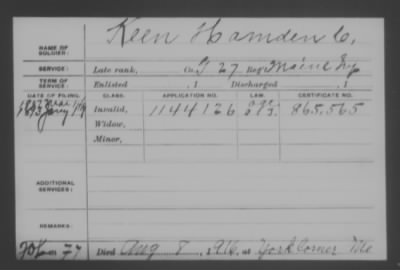 NAME OF SOLDIER: Keen Hamden C.
SERVICE: Late rank, Co. G 27 Reg't Maine Inf
TERM OF SERVICE: Enlisted , 1 Discharged , 1
DATE OF FILING. CLASS. APPLICATION NO. LAW. CERTIFICATE NO.
1893 Invalid, 1144126 865,565
Widow,
Minor,
ADDITIONAL SERVICES:
REMARKS:
77 Died Aug 8, 1916, at York Corner Me